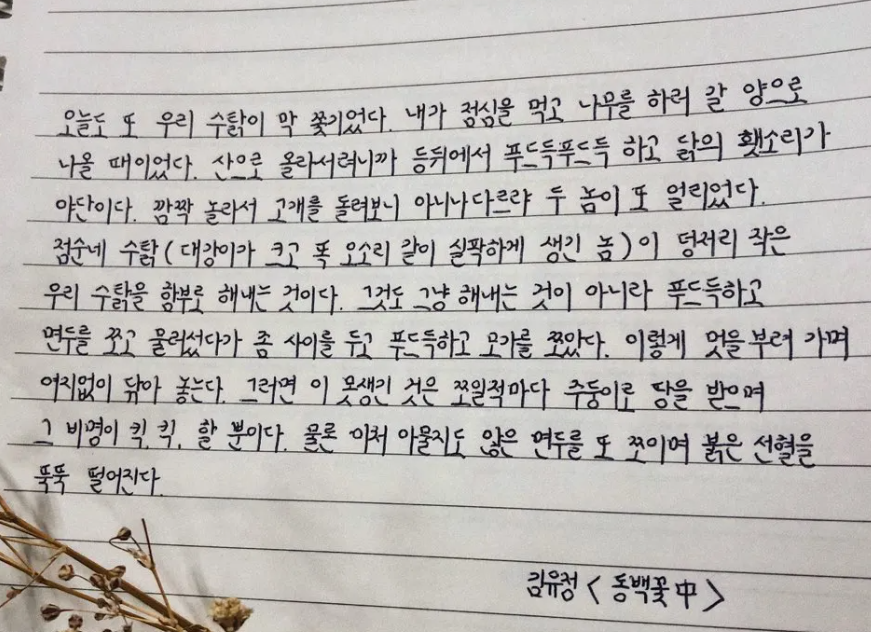 오늘도 또 우리 수탉이 막 쫓기었다. 내가 점심을 먹고 나무를 하러 갈 양으로
나올 때이었다. 산으로 올라서려니까 등뒤에서 푸드득푸드득 하고 닭의 횃소리가
야단이다. 깜짝 놀라서 고개를 돌려보니 아니나다르랴 두 놈이 또 얼리었다.
점순네 수탉(대강이가 크고 똑 오소리 같이 실팍하게 생긴 놈)이 덩저리 작은
우리 수탉을 함부로 해내는 것이다. 그것도 그냥 해내는 것이 아니라 푸드득하고
면두를 쪼고 물러섰다가 좀 사이를 두고 푸드득하고 모가를 쪼았다. 이렇게 멋을 부려 가며
여지없이 닦아 놓는다. 그러면 이 못생긴 것은 쪼일적마다 주둥이로 땅을 받으며
그 비명이 킥, 킥, 할 뿐이다. 물론 미처 아물지도 않은 면두를 또 쪼이며 붉은 선혈을
뚝뚝 떨어진다.
김유정 <동백꽃 中>